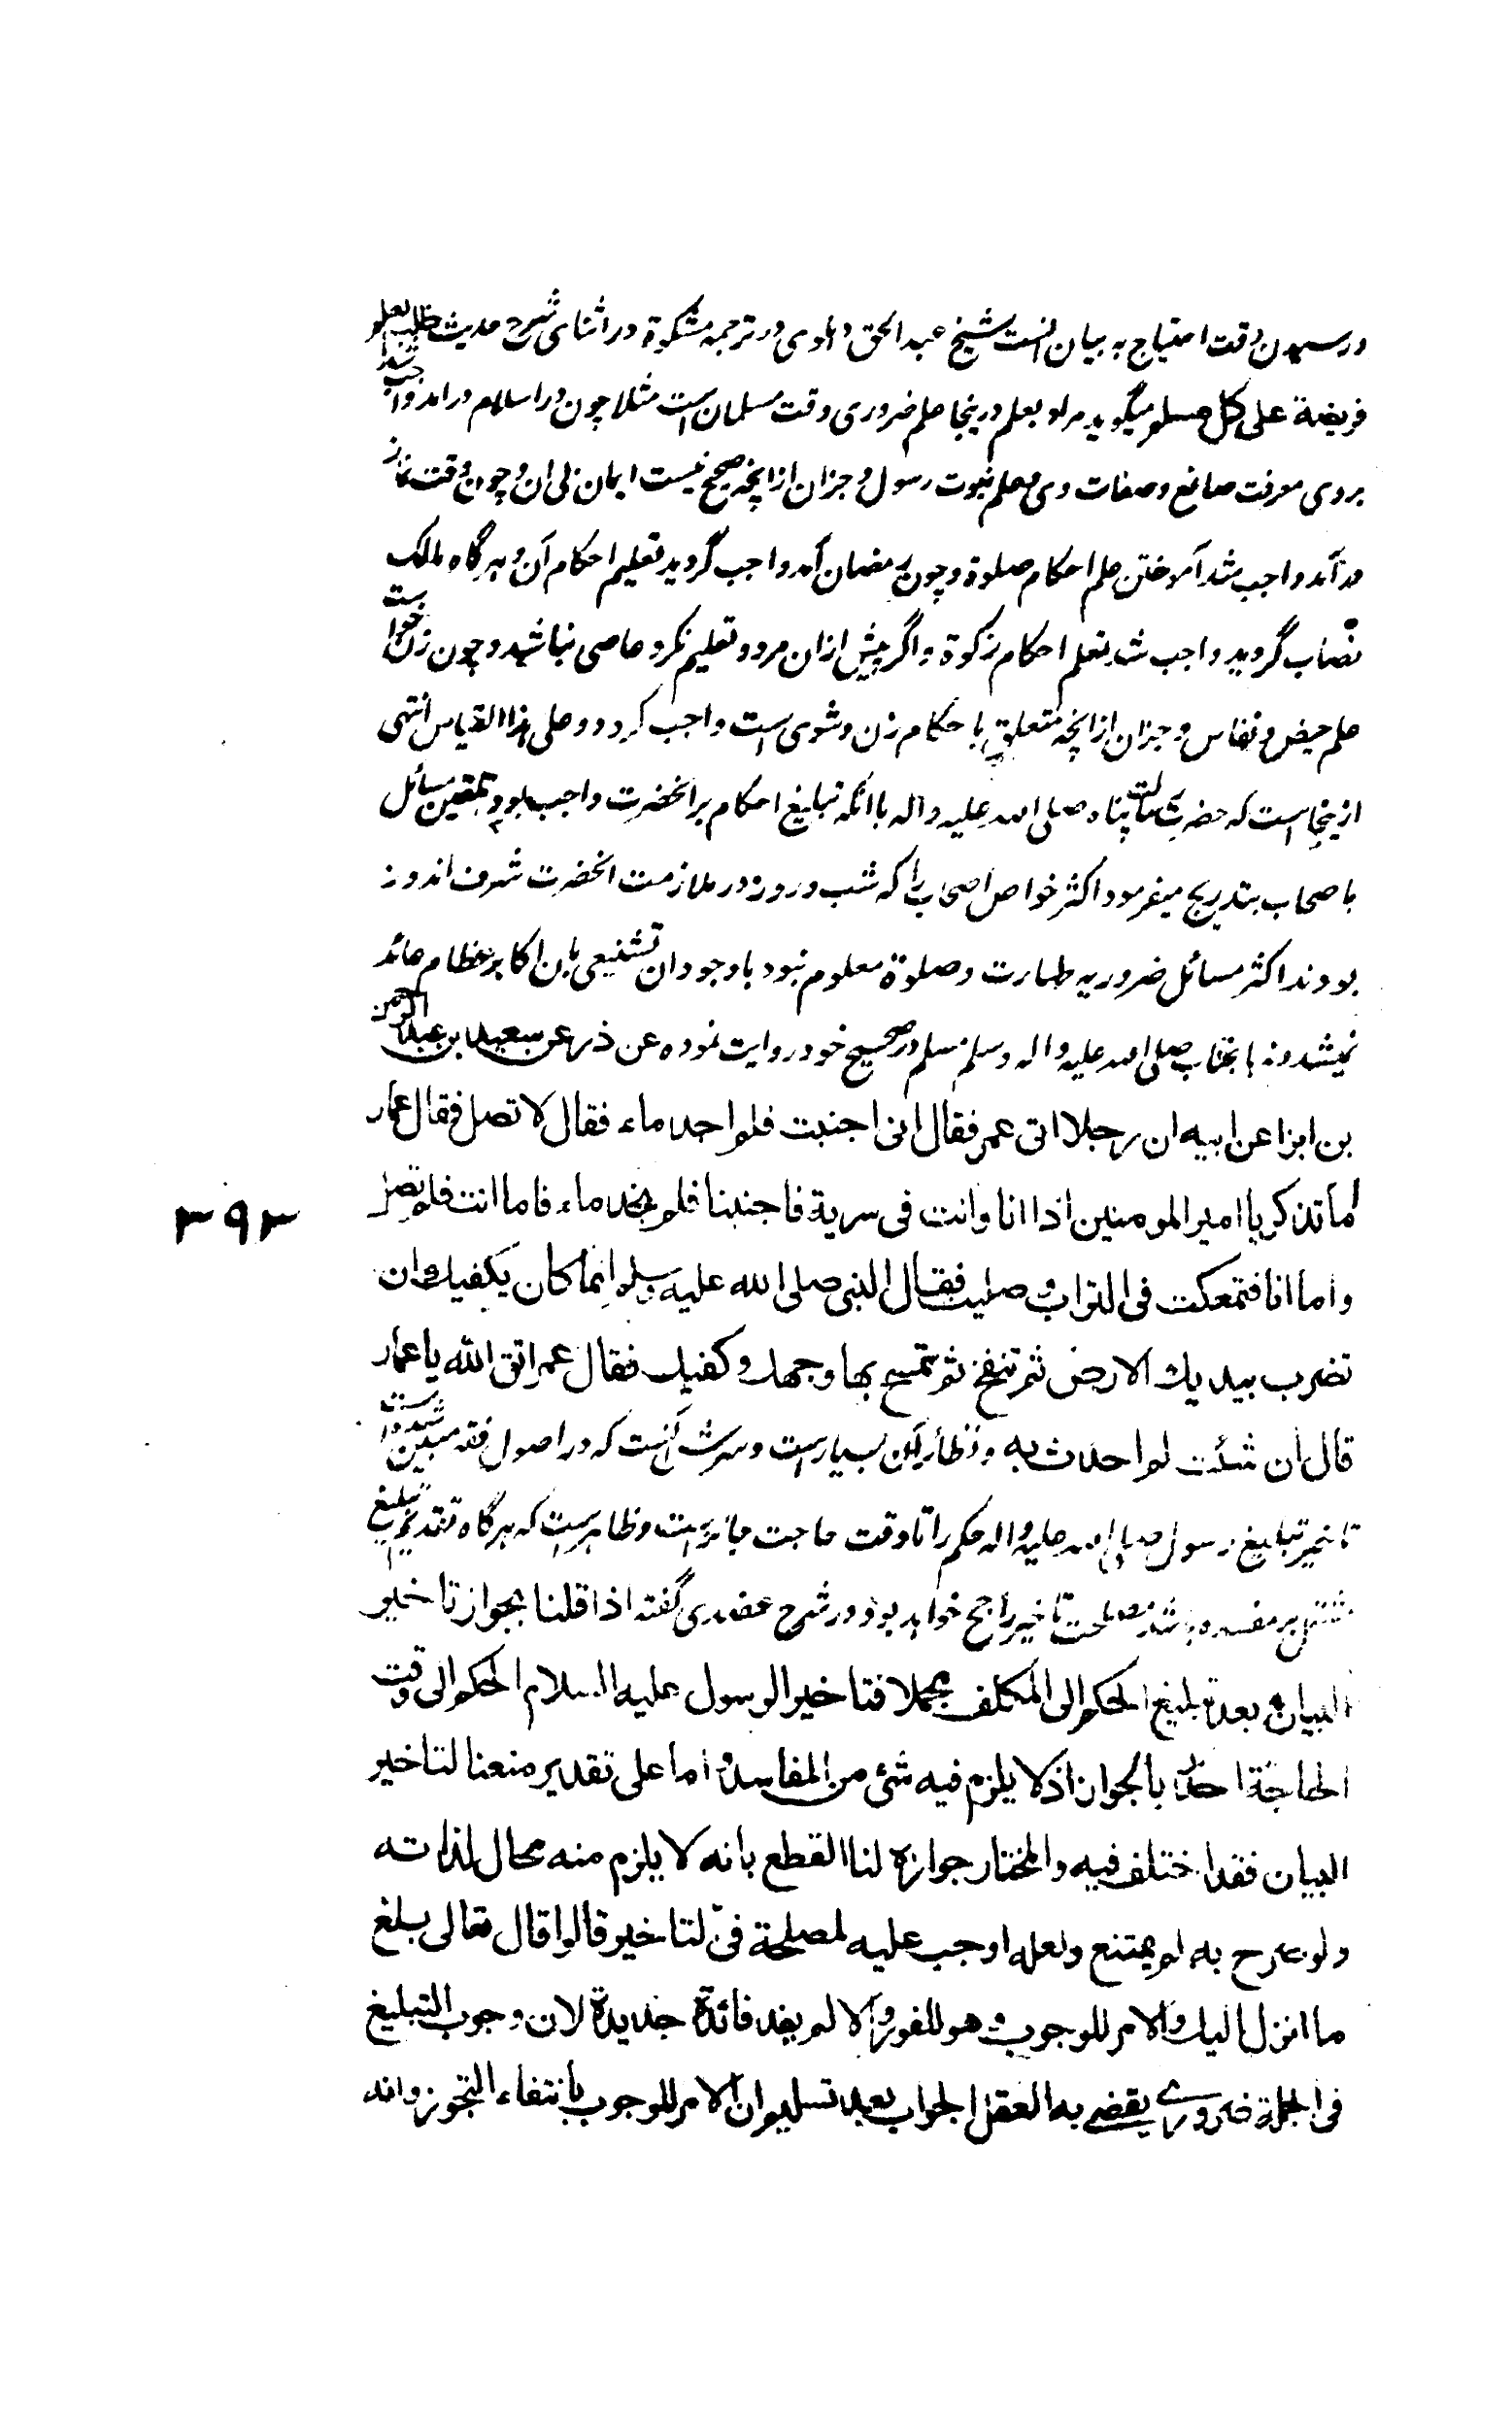 در رسیدن وقت احتیاج به بیان انست شیخ عبد الحق دهلوی در ترجمه مشکوة در اثنای شرح حدیث طلب العلم
فریضة علی کل مسلم میگوید مراد بعلم درینجا علم ضروری وقت مسلمان است مثلا چون در اسلام در امد واجب شد
بروی معرفت صانع و صفات وی و علم نبوت رسول و جزان از انچه صحیح نیست ایمان بی ان و چون وقت نماز
در آمد واجب شد آموختن علم احکام صلوة و چون رمضان آمد واجب گردید تعلیم احکام آن و هرگاه مالک
نصاب گردید واجب شد تعلم احکام زکوة و اگر پیش ازان مرد و تعلیم نکرد عاصی نباشد و چون زن خواست
علم حیض و نفاس و جزان از انچه متعلق باحکام زن و شوی است واجب گردد و علی هذا القیاس انتهی
ازینجاست که حضرت رسالت پناه صلی الله علیه و اله با انکه تبلیغ احکام بر انحضرت واجب بود تلقین مسائل
باصحاب بتدریج میفرمود اکثر خواص اصحاب را که شب و روز در ملازمت انحضرت شرف اندوز
بودند اکثر مسائل ضروریه طهارت و صلوة معلوم نبود باوجود ان تشنیعی باین اکابر عظام عائد
نمیشد و نه بانجناب صلی الله علیه و اله و سلم مسلم در صحیح خود روایت نموده عن ذر عن سعید ابن عبد الرحمن
بن ابزا عن ابیه ان رجلا اتی عمر فقال انی اجنبت فلم اجد ماء فقال لا تصل فقال عمار
اما تذکر یا امیر المومنین اذ انا وانت فی سریة فاجنبنا فلم نجد ماء فاما انت فلم تصل
واما انا فتمعکت فی التراب و صلیت فقال النبی صلی الله علیه وسلم انما کان یکفیك ان
تضرب بیدیك الارض ثم تنفخ ثم تمسح بها وجهك و کفیك فقال عمر اتق الله یا عمار
قال ان شئت لم احدث به و نظائر این بسیارست و سرش آنست که در اصول فقه مبین شده است
تاخیر تبلیغ رسول صلی الله علیه و اله حکم را تا وقت حاجت جائز است و ظاهرست که هرگاه تقدیم تبلیغ
مشتمل بر مفسده باشد مصلحت تاخیر راجح خواهد بود در شرح عضدی گفته اذا قلنا بجواز تاخیر
البیان بعد تبلیغ الحکم الی المکلف مجملا فتاخیر الرسول علیه السلام الحکم الی وقت
الحاجة بالجواز اذ لا یلزم فیه شئ من المفاسد و اما علی تقدیر منعنا لتاخیر
البیان فقد اختلف فیه والمختار جوازه لنا القطع بانه لا یلزم منه محال لذاته
ولو صرح به لم یمتنع ولعله اوجب علیه لمصلحة فی التاخیر قالوا قال تعالی بلغ
ما انزل الیك والامر للوجوب و هو للفور والا لم یفد فائدة جدیدة لان وجوب التبلیغ
فی الجملة ضروری یقضی به العقل الجواب بعد تسلیم ان الامر للوجوب بانتفاء التجوز وانه
۳۹۳